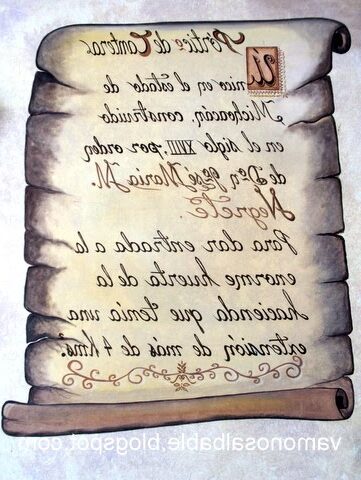 Pórtico de Cantera.
Único en el estado de
Michoacán, construido
en el siglo XVIII, por orden
de Don José María M.
Negrete.
Para dar entrada a la
enorme huerta de la
hacienda que tenía una
extensión de más de 4 Kms².
vamonosalbable.blogspot.com